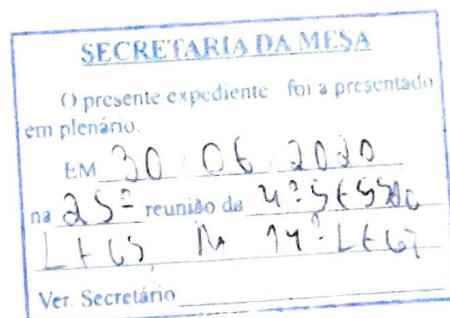 SECRETARIA DA MESA
O presente expediente foi a presentado
em plenário.
EM 30 06 2020
na 25ª reunião da 4ª SESSÃO
14ª
Ver. Secretário